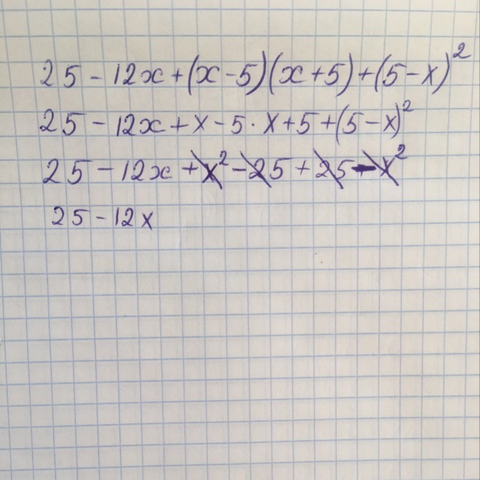 25 - 12x + (x - 5)(x + 5) + (5 - x)²
25 - 12x + x - 5 · x + 5 + (5 - x)²
25 - 12x + x² - 25 + 25 - x²
25 - 12x